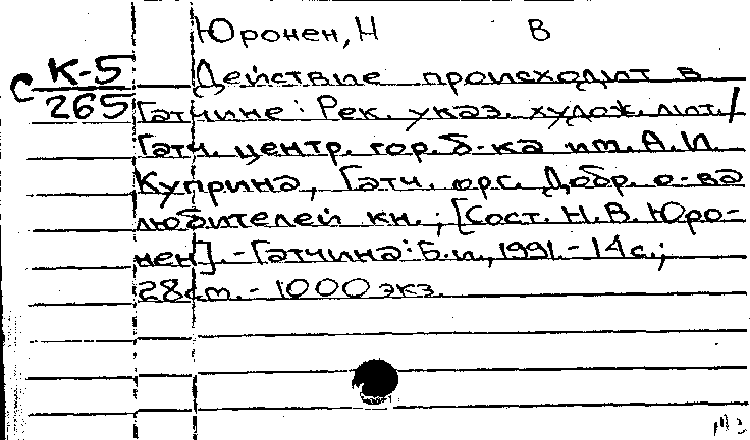 Юронен, Н В
С К-5 Действие происходит в
265 Гатчине: Рек. указ. худож. лит. /
Гатч. центр. гор. б-ка им. А. И.
Куприна, Гатч. орг. Добр. о-ва
любителей кн.; [Сост. Н. В. Юро-
нен]. - Гатчина: Б. и., 1991. - 14 с.;
28 cm. - 1000 экз.